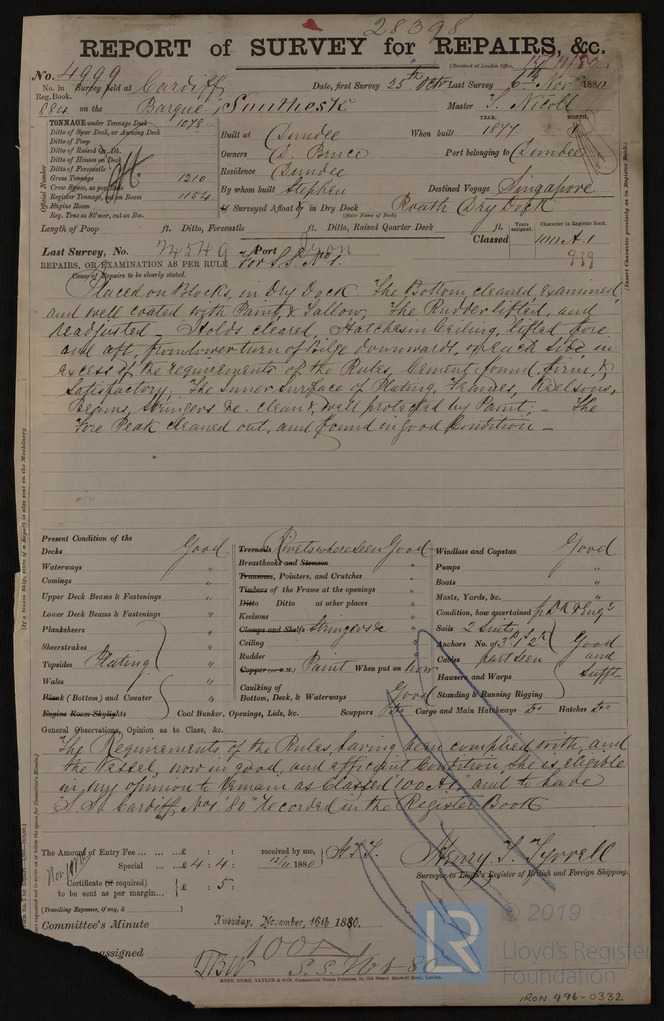 28398
REPORT of SURVEY for REPAIRS, &c.
(Received at London Office,
No. 4999 Survey held at Cardiff Date, first Survey 25th Octr Last Survey 6th Novr 1880
No. in Reg. Book.
884 on the Barque "Southesk" Master J. Nicoll
TONNAGE under Tonnage Deck 1078
Ditto of Spar Deck, or Awning Deck
Ditto of Poop
Ditto of Raised Qr. Dk.
Ditto of Houses on Deck
Ditto of Forecastle
Gross Tonnage 1210
Crew Space, as per
Register Tonnage, as on Beam 1154
Engine Room
Reg. Tons as Steamer, cut on Bm.
Official Number
Built at Dundee When built YEAR. 1877 MONTH.
Owners D. Bruce Port belonging to Dundee
Residence Dundee
By whom built Stephen Destined Voyage Singapore
If Surveyed Afloat or in Dry Dock Roath Dry Dock
(State Name of Dock)
Length of Poop ft. Ditto, Forecastle ft. Ditto, Raised Quarter Deck ft.
Years assigned. Character in Register Book.
Classed 100 A.1
Last Survey, No. 24549 Port Lon
(Insert Character precisely as in Register Book.)
REPAIRS, OR EXAMINATION AS PER RULE For S.S. No 1.
Cause of Repairs to be clearly stated.
Placed on Blocks, in Dry Dock. The Bottom cleaned, examined
and well coated with Paint & Tallow. The Rudder lifted, and
readjusted – Holds cleared, Hatches in Ceiling, lifted fore
and aft, from lower turn of Bilge downwards, on each side, in
excess of the requirements of the Rules, Cement found firm, &
Satisfactory, The Inner Surface of Plating, Frames, Keelsons,
Beams, Stringers &c. clean & well protected by Paint, – The
Fore Peak cleaned out, and found in good Condition –
(If a Steam Ship, state if a Report is also sent on the Machinery.
Present Condition of the
Decks Good
Waterways "
Comings "
Upper Deck Beams & Fastenings "
Lower Deck Beams & Fastenings "
Planksheers "
Sheerstrakes "
Topsides Plating "
Wales "
Plank (Bottom) and Counter "
Engine Room Skylights
Treenails Rivets where seen Good
Breasthooks and Stemson "
Transoms, Pointers, and Crutches "
Timbers of the Frame at the openings "
Ditto Ditto at other places "
Keelsons "
Clamps and Shelfs Stringers &c "
Ceiling "
Rudder "
Copper (or Y.M.) Paint When put on now
Caulking of Bottom, Deck, & Waterways Good
Windlass and Capstan Good
Pumps "
Boats "
Masts, Yards, &c. "
Condition, how ascertained
Sails 2 Suits
Anchors No. of 3 B. 1 S. 2 K
Cables part seen
Hawsers and Warps
Standing & Running Rigging
Good and Sufft
Coal Bunker, Openings, Lids, &c. Scuppers Do Cargo and Main Hatchways Do Hatches Do
General Observations, Opinion as to Class, &c.
The Requirements of the Rules, having been complied with, and
the Vessel, now in good, and efficient Condition, she is eligible
in my opinion to remain as Classed "100 A1" and to have
"S.S. Cardiff No 1 '80" recorded in the Register Book
The Amount of Entry Fee ... £ : : received by me,
Special ... £ 4 : 4 : 13/11 1880 H.T.T.
Certificate (if required) to be sent as per margin... £ : 5 :
(Travelling Expenses, if any, £ )
Henry T. Tyrrell
Surveyor to Lloyd's Register of British and Foreign Shipping.
Committee's Minute Tuesday, November, 16th 1880.
assigned 100 A 1
S.S. No 1-80
MONY, EDMD. TAYLOR & SON, Commercial Steam Printers, London.
© 2019
LR
Lloyd's Register
Foundation
IRON 496-0332